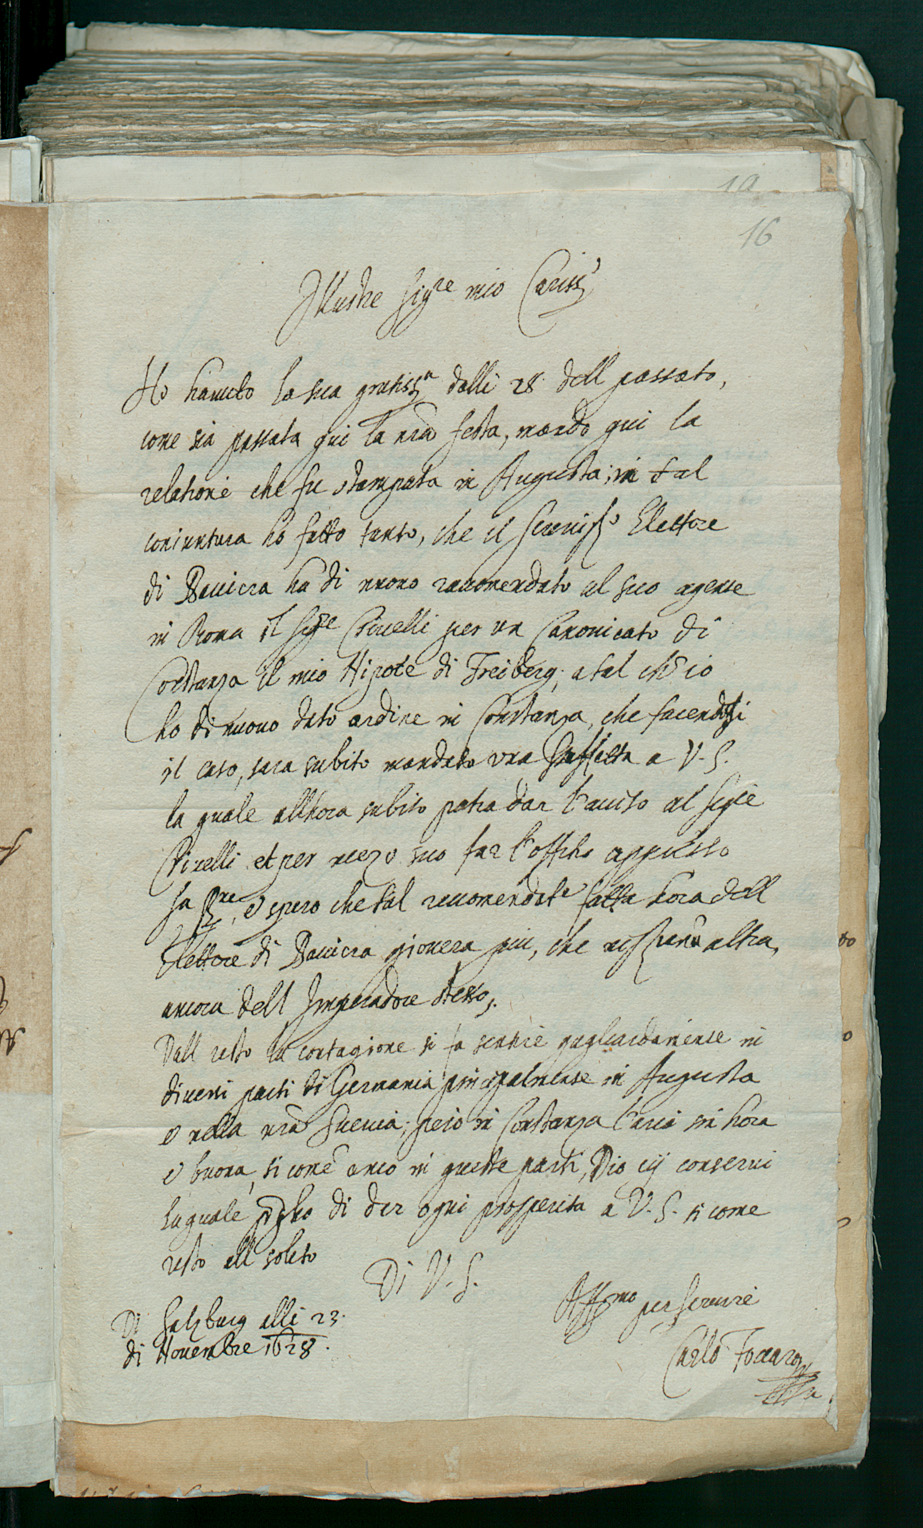 19
16
Illustre Sig.re mio Cariss.o
Ho havuto la sua gratiss.a delli 28 dell passato,
come sia passata qui la nrã festa, mando qui la
relatione che fu stampata in Augusta; in tal
coniuntura hò fatto tanto, che il Sereniss.o Elettore
di Baviera ha di nuovo raccomendato al suo agente
in Roma il Sig.re Crivelli per un Canonicato di
Costanza il mio Nipote di Freiberg, a tal che io
ho di nuovo dato ordine in Constanza, che facendosi
il caso, sara subito mandato una staffetta a V. S.
la quale allhora subito potra dar l'aviso al Sig.re
Crivelli et per mezo suo far l'offitio appresso
Sua e spero che tal raccomendat.e fatta hora dall
Elettore di Baviera giovera piu, che altra,
ancora dell Imperadore stesso.
Dall resto la contagione si fa sentire gagliardamente in
diversi parti di Germania principalmente in Augusta
e nella nrã Suevia, però in Constanza l'aria sin hora
e buona, si come anco in queste parti, Dio cij conservi
laquale di dar ogni prosperita a V. S. si come
resto all solito
Di V. S.
Di Salzburg alli 23.
di Novembre 1628.
Aff.mo per servire
Carlo